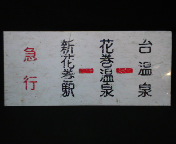 台温泉
花巻温泉
新花巻駅
急行